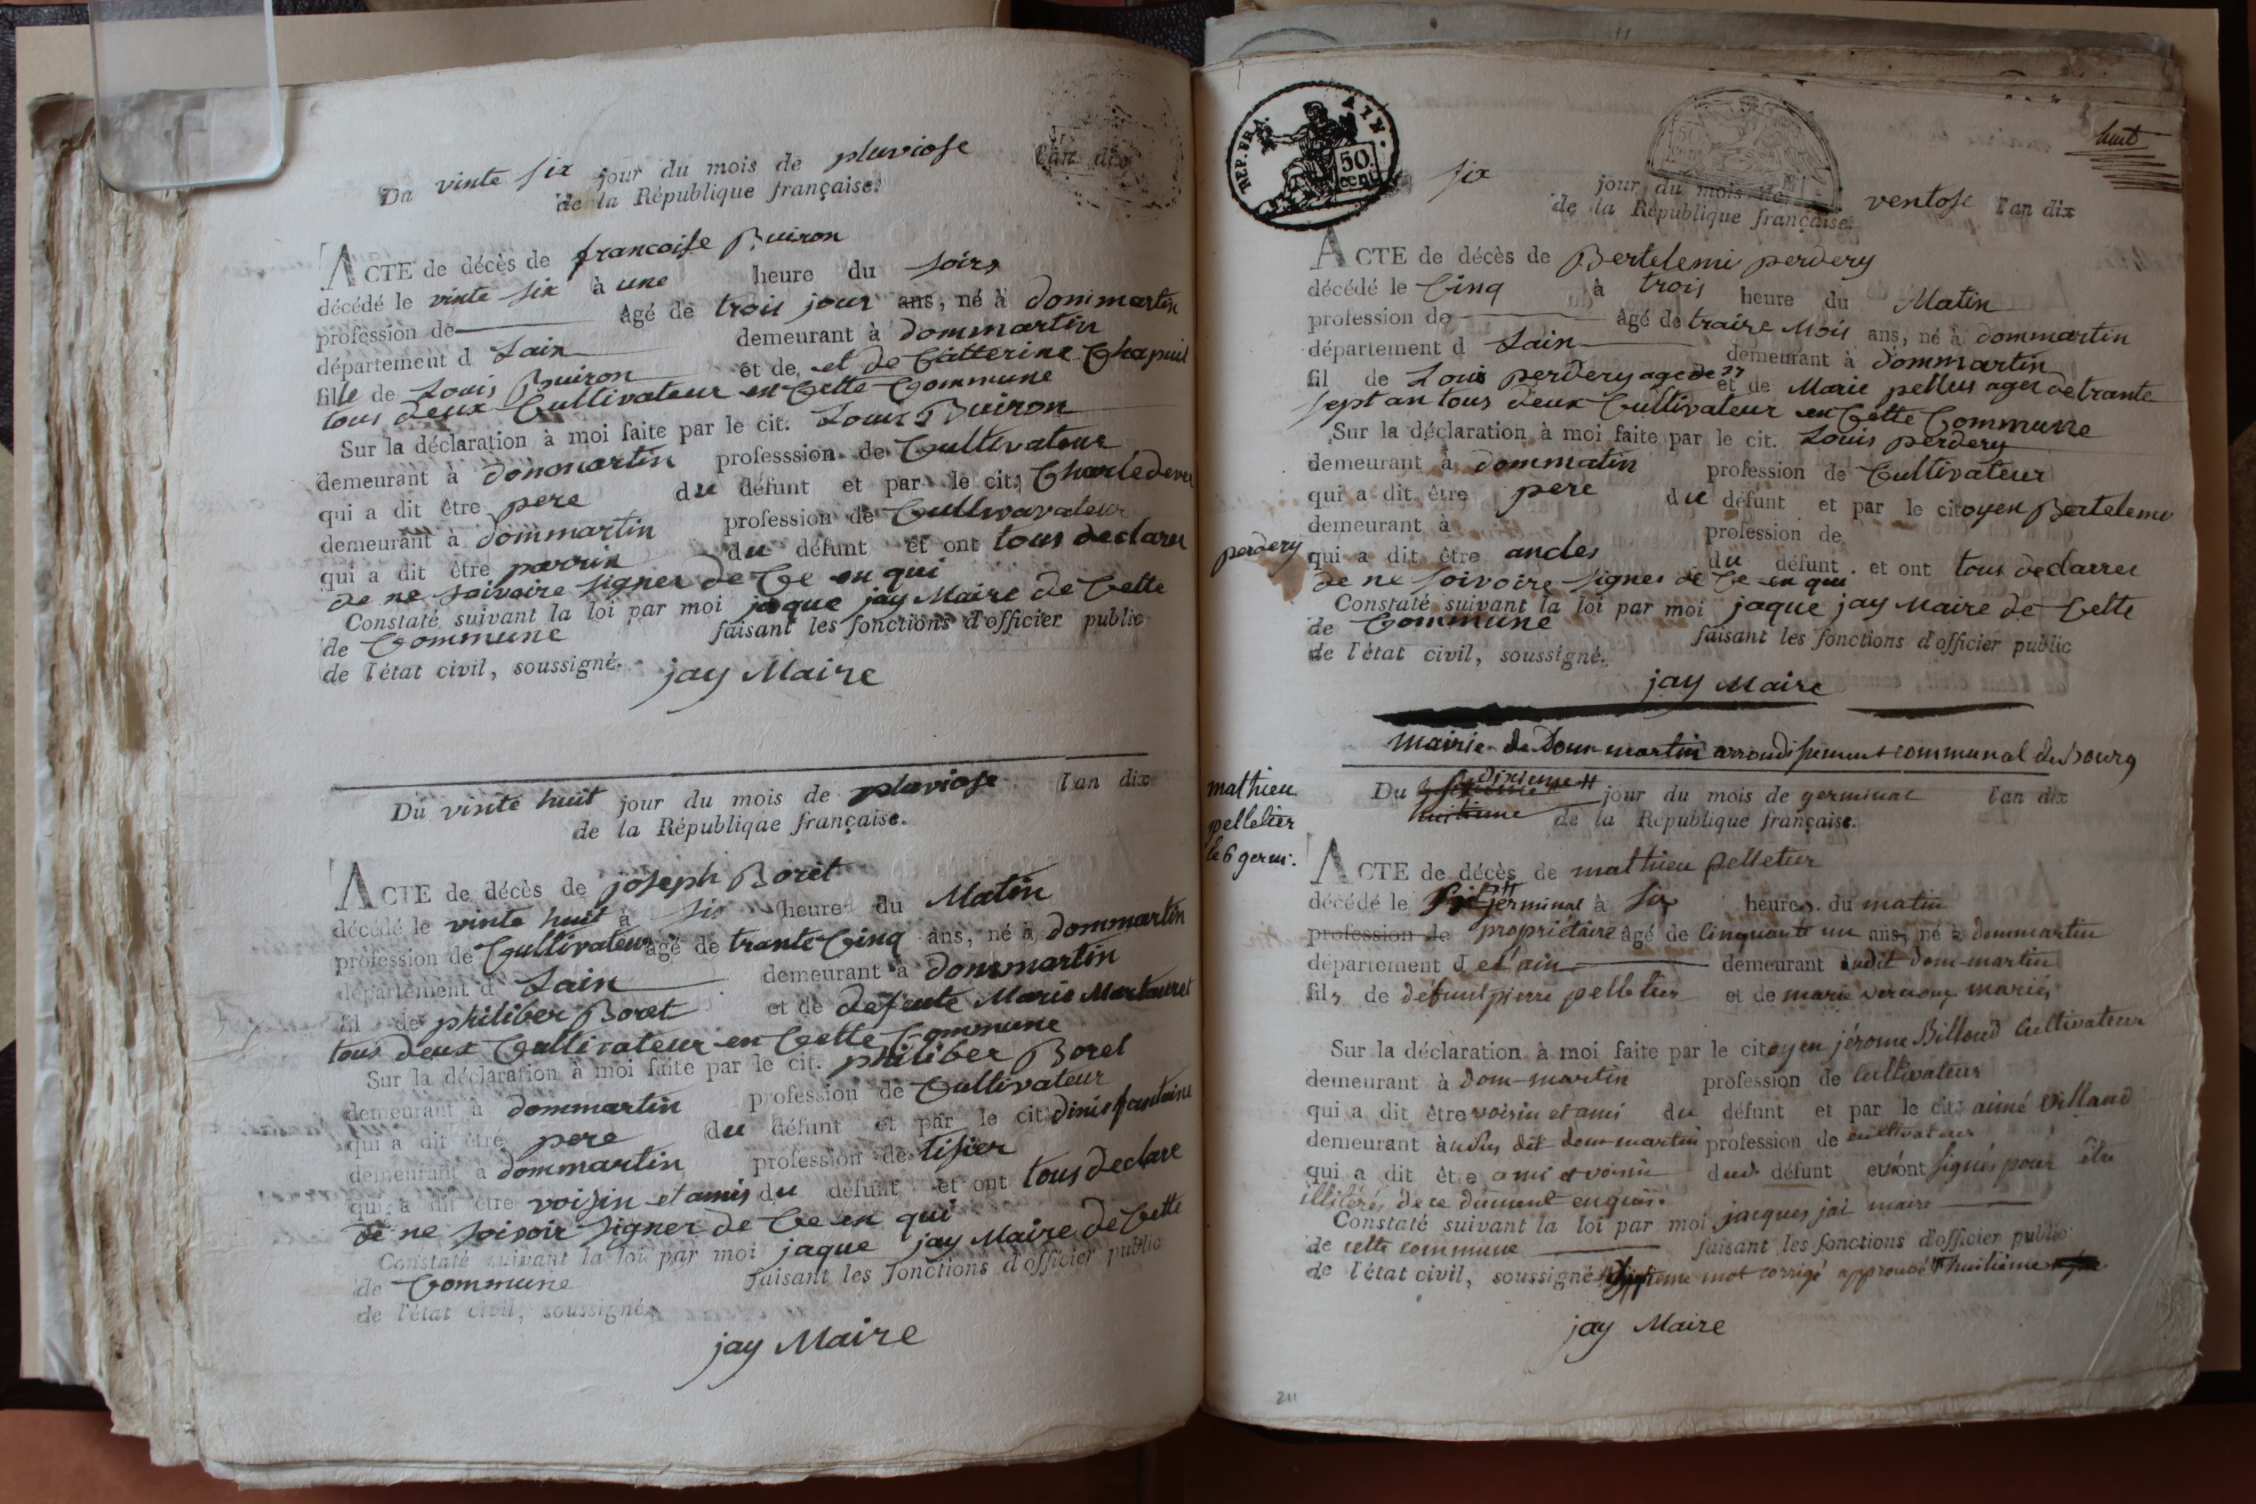 Du vinte six jour du mois de pluviose l'an dix
de la République française.
ACTE de décès de francoise Buiron
décédé le vinte six à une heure du soirs
profession de âgé de trois jour ans, né à dommartin
département d Lain demeurant à dommartin
fille de Louis Buiron et de, et de Catterine Chapuit
tous deux Cultivateur en Cette Commune
Sur la déclaration à moi faite par le cit. Louis Buiron
demeurant à dommartin professsion de Cultivateur
qui a dit être pere du défunt et par le cit.
demeurant à dommartin profession de Cultivavateur
qui a dit être parrin du défunt et ont tous declarer
de ne soivoire signer de Ce en qui
Constaté suivant la loi par moi jaque jay Maire de Cette
de Commune faisant les fonctions d'officier public
de l'état civil, soussigné.
jay Maire
Du vinte huit jour du mois de pluviose l'an dix
de la République française.
ACTE de décès de joseph Boret
décédé le vinte huit à six heure du Matin
profession de Cultivateur âgé de trante Cinq ans, né à dommartin
département d Lain demeurant à dommartin
fil de philiber Boret et de defunte Marie
tous deux Cultivateur en Cette Commune
Sur la déclaration à moi faite par le cit. philiber Boret
demeurant à dommartin profession de Cultivateur
qui a dit être pere du défunt et par le cit. dinis fontaine
demeurant à dommartin profession de tisier
qui a dit être voisin et amis du défunt et ont tous declare
de ne soivoir signer de Ce en qui
Constaté suivant la loi par moi jaque jay Maire de Cette
de Commune faisant les fonctions d'officier public
de l'état civil, soussigné.
jay Maire
REP. FRA. AIN.
50. cent.
huit
six jour du mois de ventose l'an dix
de la République française.
ACTE de décès de Bertelemi perdery
décédé le Cinq à trois heure du Matin
profession de âgé de traire Mois ans, né à dommartin
département d Lain demeurant à dommartin
fil de Loui perdery age de 37 et de Marie pellus ager de trante
sept an tous deux Cultivateur en Cette Commune
Sur la déclaration à moi faite par le cit. Louis perdery
demeurant à dommatin profession de Cultivateur
qui a dit être pere du défunt et par le citoyen Bertelemi
perdery
demeurant à profession de
qui a dit être ancles du défunt et ont tous declarrer
de ne soivoire signer de Ce en qui
Constaté suivant la loi par moi jaque jay Maire de Cette
de Commune faisant les fonctions d'officier public
de l'état civil, soussigné.
jay Maire
mairie de Dom martin arrondissement communal de Bourg
mathieu
pelletier
le 6 germ.
Du dixieme jour du mois de germinal l'an dix
huitieme de la République française.
ACTE de décès de mathieu pelletier
décédé le germinal à six heures du matin
profession de propriétaire âgé de Cinquante un ans, né à dommartin
département de l'ain demeurant audit dom-martin
fils de defunt pierre pelletier et de marie mariés
Sur la déclaration à moi faite par le citoyen jérome Billoud Cultivateur
demeurant à dom-martin profession de Cultivateur
qui a dit être voisin et ami du défunt et par le cit. aimé
demeurant audit dom martin profession de cultivateur
qui a dit être ami et voisin dud. défunt et n'ont signés pour être
illitérés de ce dument enquis.
Constaté suivant la loi par moi jacques jai maire
de cette commune faisant les fonctions d'officier public
de l'état civil, soussigné mot corrigé approuvé huitieme
jay Maire
211